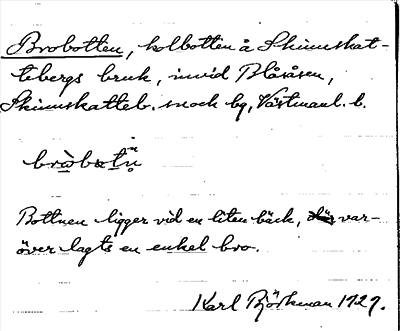 Brobotten, kolbotten å Skinnskat-
tebergs bruk, invid Blååsen,
Skinnskatteb. snock bg, Västmanl. b.
bròbotn
Bottnen ligger vid en liten bäck, var-
över lagts en enkel bro.
Karl Björkman 1929.